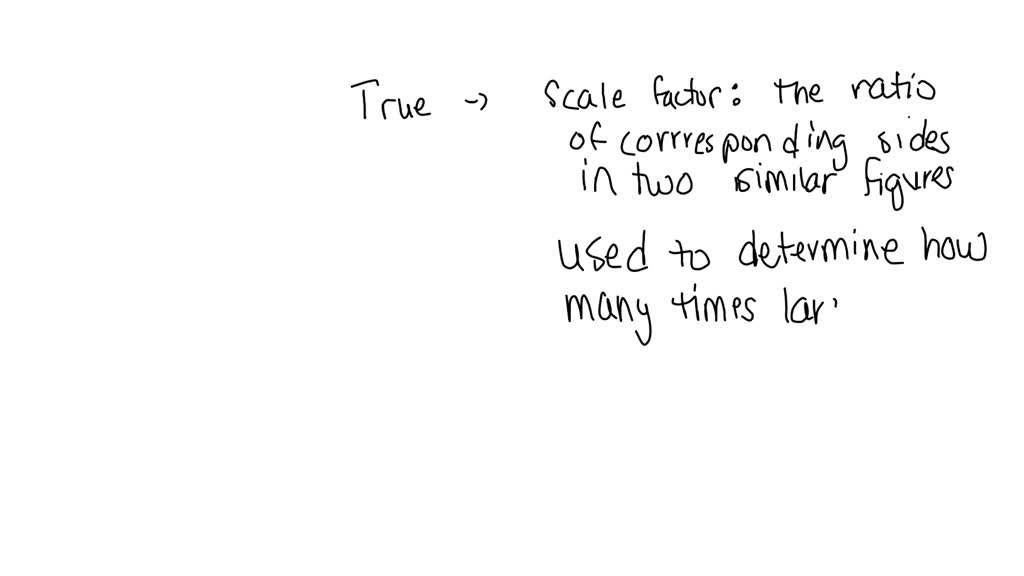 True → Scale factor: the ratio
of corrresponding sides
in two similar figures
used to determine how
many times lar